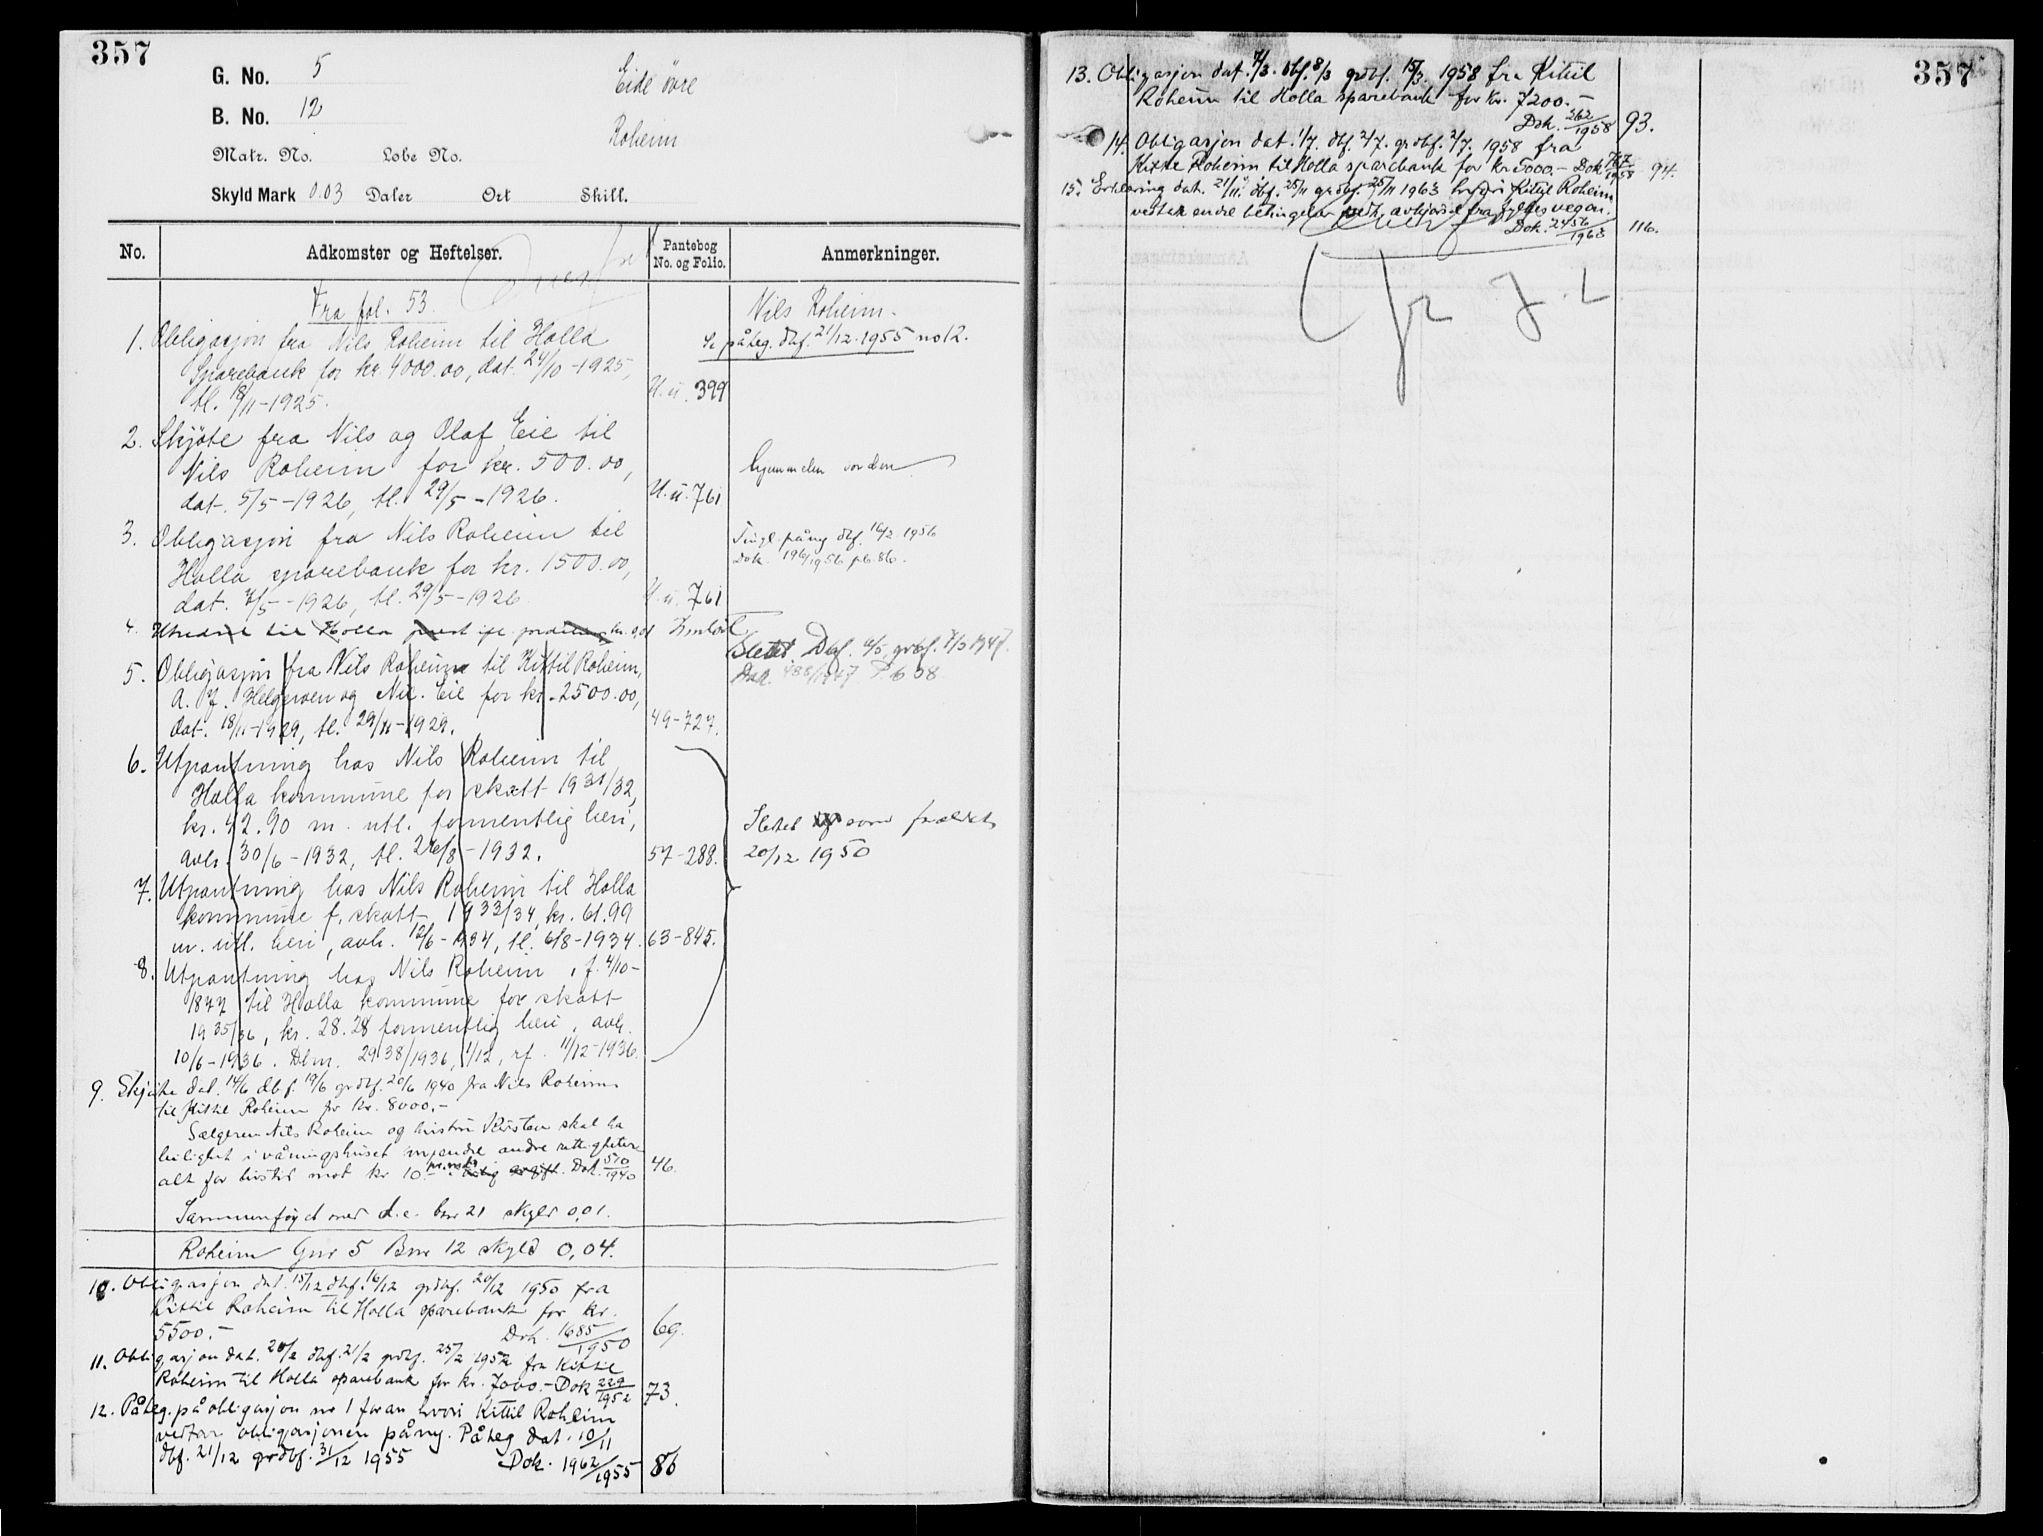 357
G. No. 5
Eide övre
B. No. 12
Roheim
Matr. No. Løbe No.
Skyld Mark 0.03 Daler Ort Skill.
No. Adkomster og Heftelser. Pantebog No. og Folio. Anmerkninger.
Fra fol. 53.
Nils Roheim.
1. Obligasjon fra Nils Roheim til Holla
Sparebank for kr. 4000.00, dat. 24/10-1925,
tl. 18/11-1925. U.ü. 399
Se påteg. dbf. 21/12.1955 no 12.
2. Skjöte fra Nils og Olaf Eie til
Nils Roheim for kr. 500.00,
dat. 5/5-1926, tl. 29/5-1926. U.ü. 761
3. Obligasjon fra Nils Roheim til
Holla sparebank for kr. 1500.00,
dat. 7/5-1926, tl. 29/5-1926. U.ü. 761
Tingl. påny dbf. 16/2 1956
Dok. 196/1956 pb. 86.
4. til Holla
5. Obligasjon fra Nils Roheim til Kittil Roheim,
A. J. Helgeroen og Nil. Eie for kr. 2500.00,
dat. 18/11-1929, tl. 29/11-1929. 49-727.
Slettet Dbf. grdbf. 7/5 1947.
Dok. 488/1947 P b 38
6. Utpantning hos Nils Roheim til
Holla kommune for skatt 1931/32,
kr. 42.90 m. utl. formentlig heri,
avh. 30/6-1932, tl. 26/8-1932. 57-288.
Slettet som foreldet
20/12 1950
7. Utpantning hos Nils Roheim til Holla
kommune f. skatt 1933/34, kr. 61.99
m. utl. heri, avh. 12/6-1934, tl. 6/8-1934. 63-845.
8. Utpantning hos Nils Roheim, f. 4/10-
1877 til Holla kommune for skatt
1935/36, kr. 28.28 formentlig heri, avh.
10/6-1936. Dbm. 2938/1936, 1/12, rf. 11/12-1936.
9. Skjöte dat. 14/6 dbf. 19/6 grdbf. 20/6 1940 fra Nils Roheim
til Kittil Roheim for kr. 8000.-
Sælgeren Nils Roheim og hustru Kirsten skal ha
leilighet i våningshuset m/andre rettigheter
alt for livstid mot kr 10.- Dok. 510/1940 46.
Sammenføyet med d.e. bnr 21 skyld 0,01.
Roheim Gnr 5 Bnr 12 skyld 0,04.
10. Obligasjon dat. 15/12 dbf. 16/12 grdbf. 20/12 1950 fra
Kittil Roheim til Holla sparebank for kr.
5500.- Dok. 1685/1950 69.
11. Obligasjon dat. 20/2 dbf. 21/2 grdbf. 25/2 1952 fra Kittil
Roheim til Holla sparebank for kr. 7000.- Dok 229/1952 73.
12. Påteg. på obligasjon nr 1 foran hvori Kittil Roheim
vedtar obligasjonen påny. Påteg dat. 10/11
dbf. 21/12 grdbf. 31/12 1955 Dok. 1962/1955 86
357
13. Obligasjon dat. 7/3. dbf. 8/3 grdbf. 15/3. 1958 fra Kittil
Roheim til Holla sparebank for kr. 7200.-
Dok. 262/1958 93.
14. Obligasjon dat. 1/7. dbf. 2/7. grdbf. 2/7. 1958 fra
Kittil Roheim til Holla sparebank for kr. 5000.- Dok 767/1958 94.
15. Erklæring dat. 21/11. dbf. 25/11 grdbf. 25/11 1963 hvori Kittil Roheim
vedtok endre betingelser vedk. avkjørsel fra fylkesvegen.
Dok. 2456/1963 116.